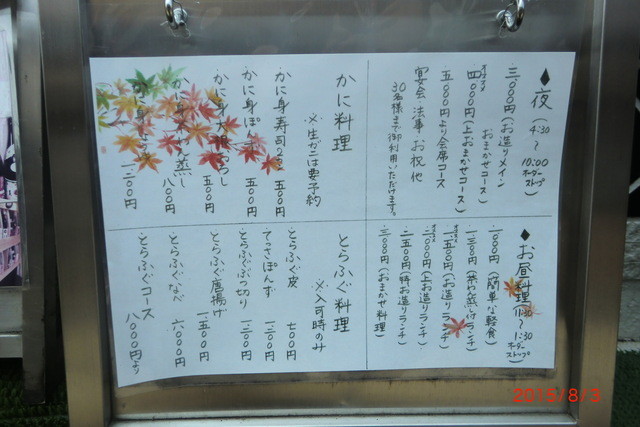 ◆夜 (4:30〜10:00 オーダーストップ)
三〇〇〇円(お造りメイン
おまかせコース)
四〇〇〇円(上おまかせコース)
五〇〇〇円より会席コース
宴会 法事 お祝 他
30名様まで御利用いただけます。
◆お昼料理
1:30 オーダーストップ
一〇〇〇円(簡単な軽食)
一三〇〇円
一五〇〇円(お造りランチ)
二〇〇〇円(上お造りランチ)
二五〇〇円(特お造りランチ)
三〇〇〇円(おまかせ料理)
かに料理
※生ガニは要予約
かに身寿司 五〇〇円
かに身ぽん 五〇〇円
かに身 五〇〇円
蒸し 八〇〇円
一二〇〇円
とらふぐ料理
※入可時のみ
とらふぐ皮 七〇〇円
てっさぽんず 一二〇〇円
とらふぐぶつ切り 一二〇〇円
とらふぐ唐揚げ 一五〇〇円
とらふぐなべ 六〇〇〇円
とらふぐコース 八〇〇〇円より
2015/8/3